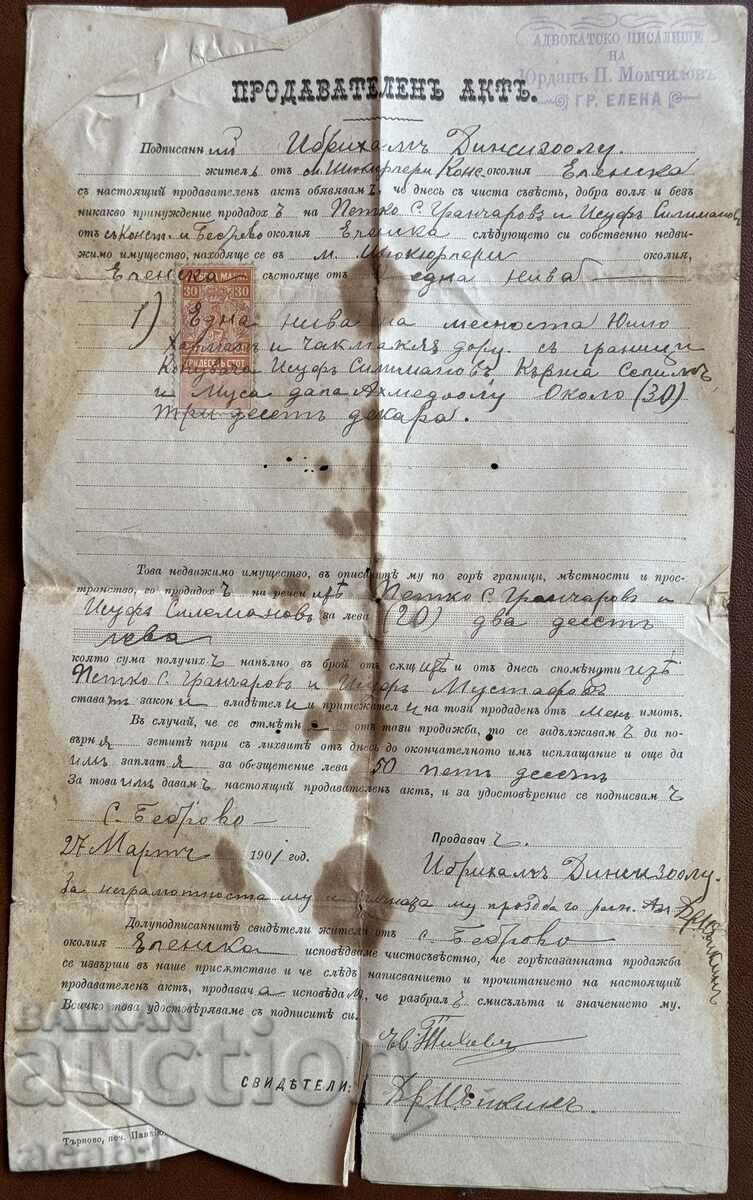 АДВОКАТСКО ПИСАЛИЩЕ
НА
Юрданъ П. Момчиловъ
ГР. ЕЛЕНА
ПРОДАВАТЕЛЕНЪ АКТЪ.
Подписанний Ибрихамъ
жителъ от с. Конс. околия Еленска
съ настоящий продавателен актъ обявявамъ, че днесь съ чиста съвѣсть, добра воля и безъ
никакво принуждение продадохъ на Петко С. Гранчаровъ и Исуфъ Силимановъ
отъ с. Конст. и Беброво околия Еленска следующето си собственно недви-
жимо имущество, находяще се въ м. околия,
Еленска състояще отъ една нива
30 30
ТРИДЕСЕТЬ СТОТ
1) Една нива на месноста Юлю
и дору. съ граници
Исуфъ Силимановъ Кържа
и Муса Ахмедоолу Около (30)
три десетъ декара.
Това недвижимо имущество, въ описанитѣ му по горѣ граници, мѣстности и прос-
транство, го продадохъ на речений Петко С. Гранчаровъ и
Исуфъ Силемановъ за лева (20) два десетъ
лева
която сума получихъ напълно въ брой отъ и отъ днесь
Петко С. Гранчаровъ и Исуфъ Мустафовъ
ставатъ закони владѣтели и притежатели на този продаденъ отъ мен имотъ.
Въ случай, че се отмѣтна отъ тази продажба, то се задължавамъ да по-
върня зетитѣ пари съ лихвитѣ отъ днесь до окончателното имъ исплащание и още да
имъ заплатя за обезщетение лева 50 петъ десетъ
За това имъ давамъ настоящий продавателенъ актъ, и за удостовѣрение се подписвамъ
с. Беброво
27 Мартъ 1901 год.
Продавачъ
Ибрихамъ
За неграмотността му и му
Долуподписаннитѣ свидѣтели жители отъ с. Беброво
околия Еленска исповѣдваме чистосъвѣстно, че горѣказанната продажба
се извърши въ наше присѫтствие и че слѣдъ написванието и прочитанието на настоящий
продавателенъ актъ, продавача исповѣда, че разбралъ смисълта и значението му.
Всичко това удостовѣряваме съ подписитѣ си.
СВИДѢТЕЛИ:
Търново, печ.
BALKAN
auction
acab1